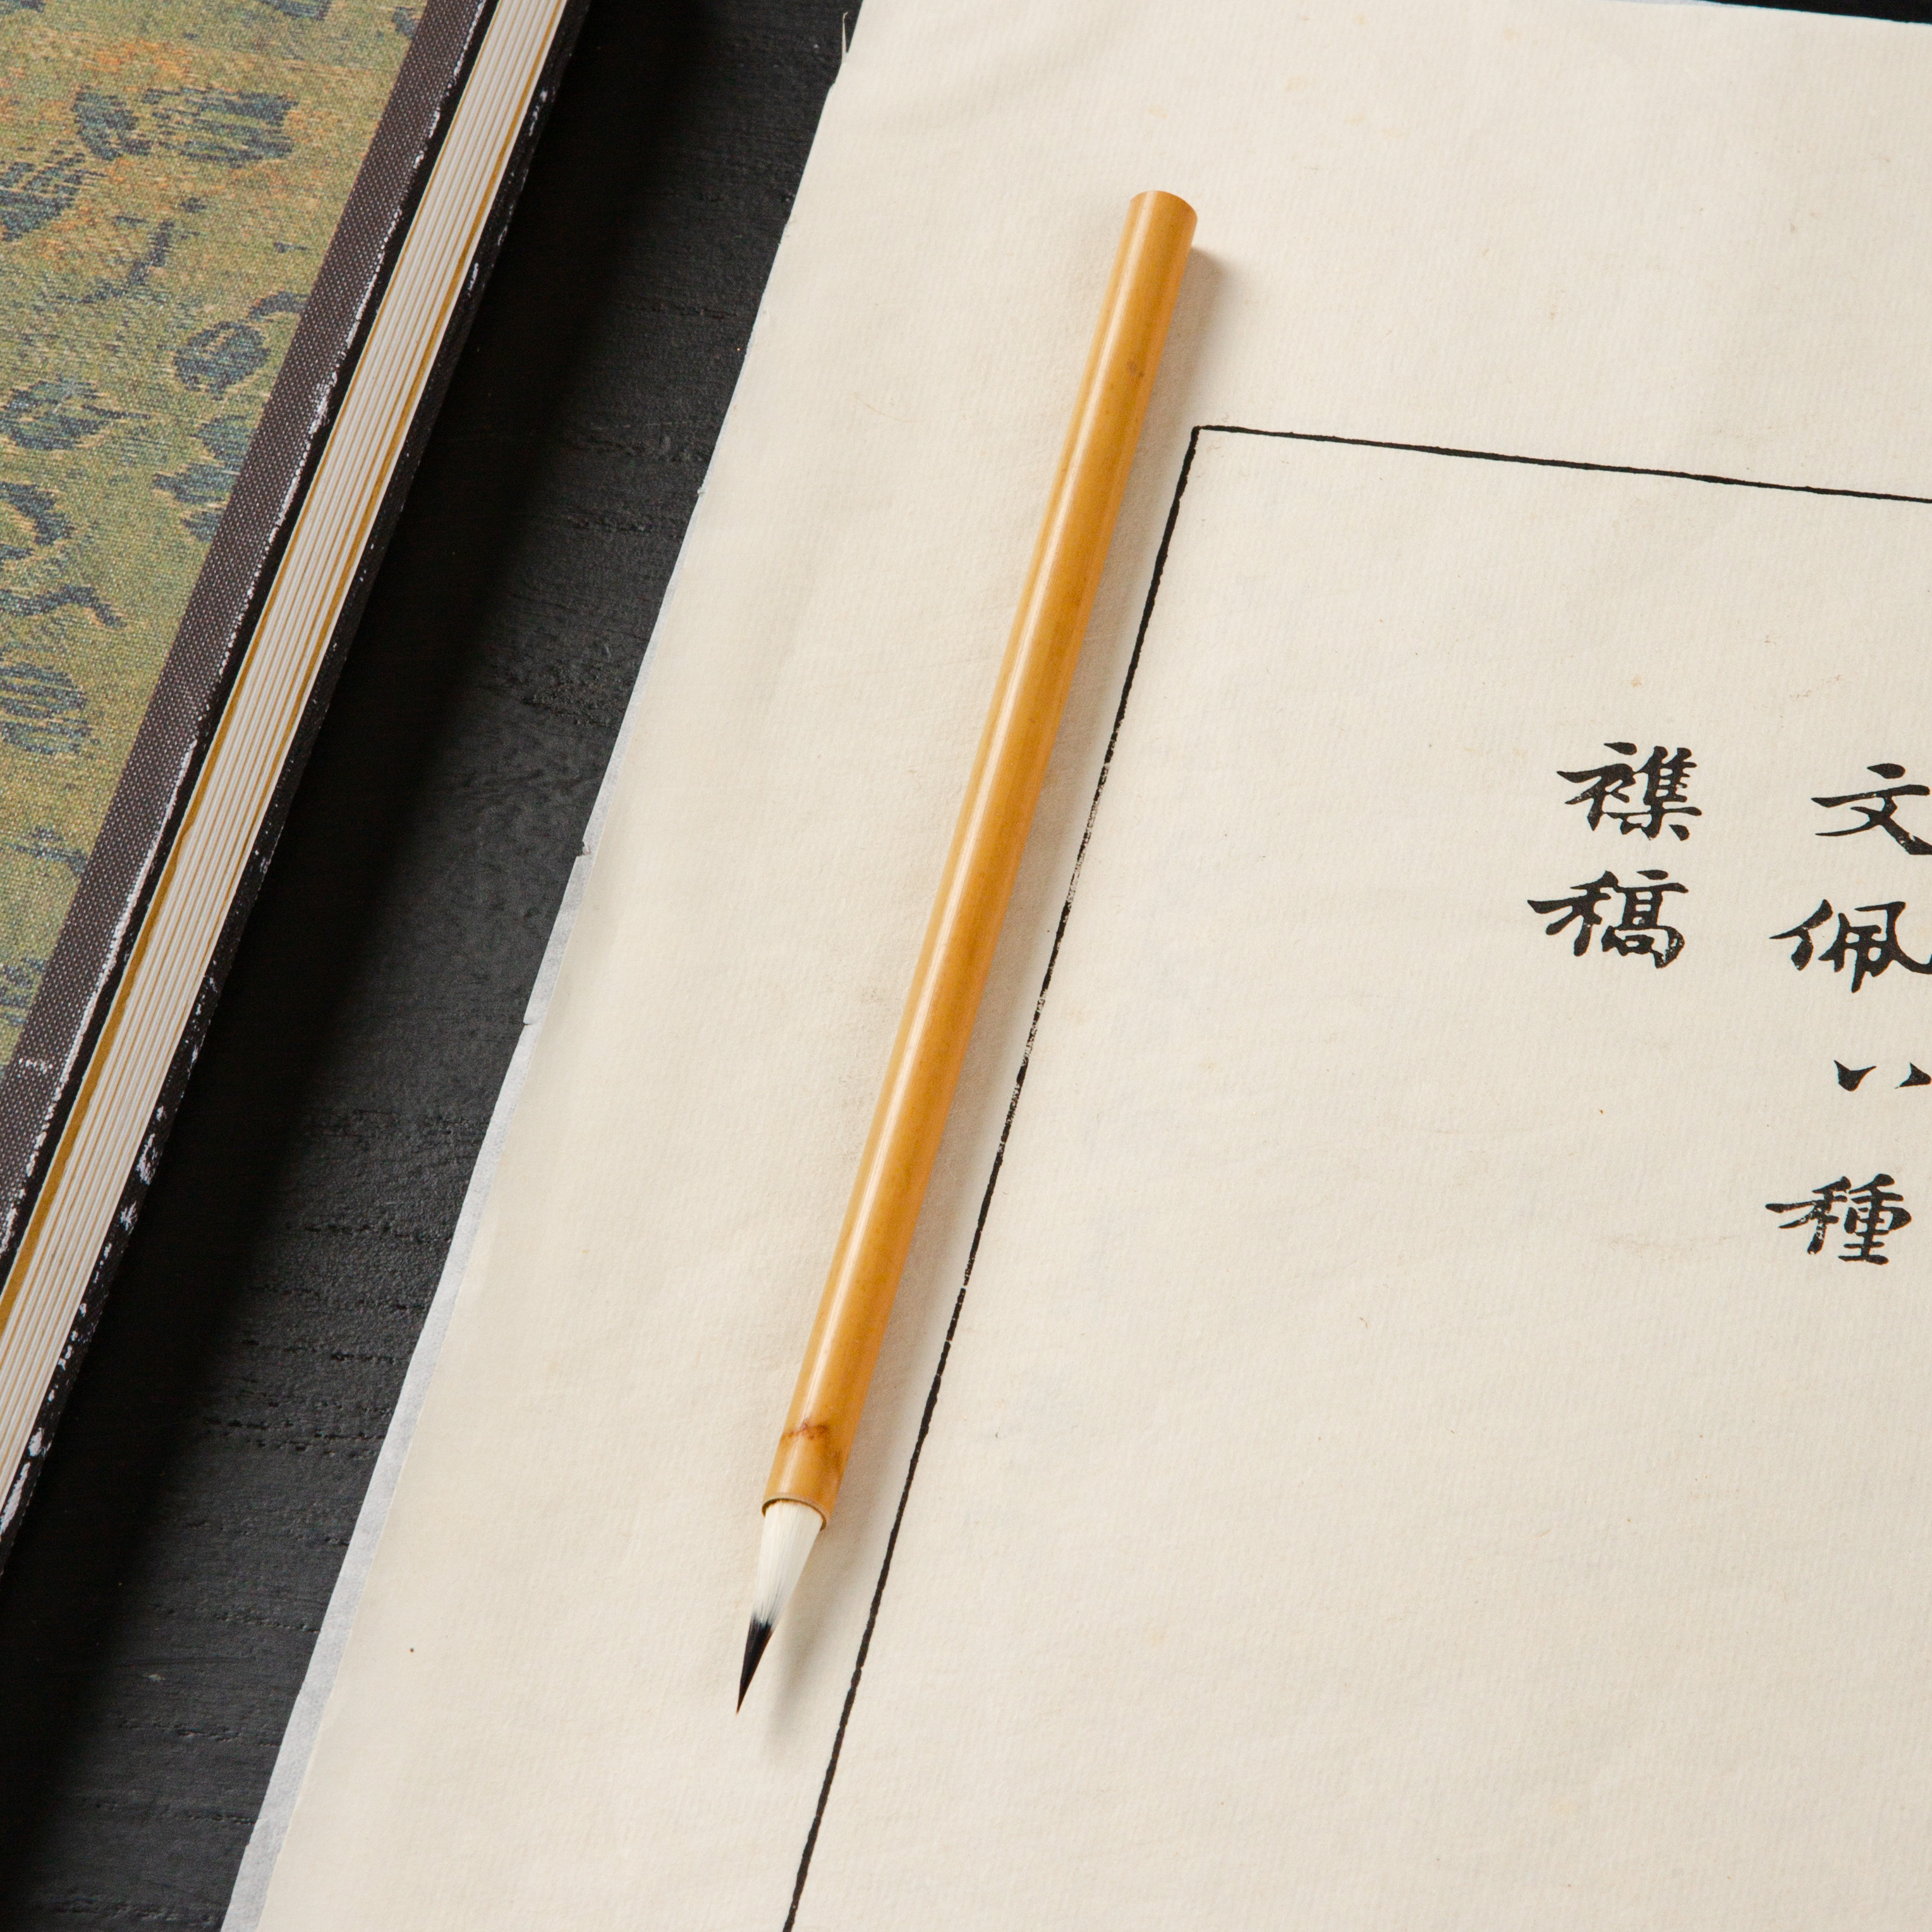 文佩八種
襍稿